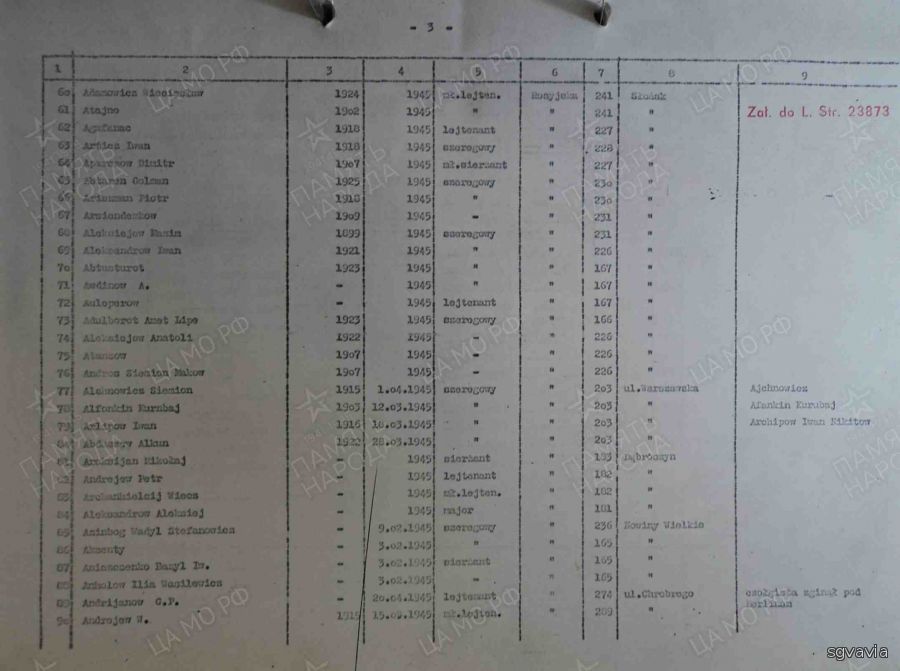 - 3 -
1 2 3 4 5 6 7 8 9
60 Adamowicz Wieciesław 1924 1945 mł.lejten. Rosyjska 241 Słońsk
61 Atajno 1902 1945 " " 241 "
Zał. do L. Str. 23873
62 1918 1945 lejtenant " 227 "
63 Iwan 1918 1945 szeregowy " 228 "
64 Dimitr 1907 1945 mł.sierżant " 227 "
65 1925 1945 szeregowy " 230 "
66 Piotr 1918 1945 " " 230 "
67 1909 1945 - " 231 "
68 Aleksiejew 1899 1945 szeregowy " 231 "
69 Aleksandrow Iwan 1921 1945 " " 226 "
70 Abtusturot 1923 1945 " " 167 "
71 Awdinow A. - 1945 " " 167 "
72 Auloperow - 1945 lejtenant " 167 "
73 Adulborot Amet Lipe 1923 1945 szeregowy " 166 "
74 Aleksiejew Anatoli 1922 1945 - " 226 "
75 Atansow 1907 1945 - " 226 "
76 Andros Siemion Makow 1907 1945 - " 226 "
77 Alchnowicz Siemion 1915 1.04.1945 szeregowy " 203 ul.Warszawska Ajchnowicz
78 Alfonkin Kurubaj 1903 12.03.1945 " " 203 " Afonkin Kurubaj
79 Arlipow Iwan 1916 18.03.1945 " " 203 " Archipow Iwan Nikitow
80 Alkun 1922 28.03.1945 " " 203 "
81 Mikołaj - 1945 sierżant " 183 Dąbroszyn
82 Andrejew Petr - 1945 lejtenant " 182 "
83 Wices - 1945 mł.lejten. " 182 "
84 Aleksandrow Aleksiej - 1945 major " 181 "
85 Aninbog Wadyl Stefanowicz - 9.02.1945 szeregowy " 236 Nowiny Wielkie
86 Aksenty - 3.02.1945 " " 165 "
87 Aniszczenko Bazyl Iw. - 3.02.1945 sierżant " 165 "
88 Anholow Ilia Wasilewicz - 3.02.1945 - " 165 "
89 Andrijanow G.P. - 20.04.1945 lejtenant " 274 ul.Chrobrego czołgista zginął pod
Berlinem
90 Andrejew W. 1915 15.02.1945 mł.lejten. " 209 "
ПАМЯТЬ НАРОДА
ЦА МО РФ
sgvavia